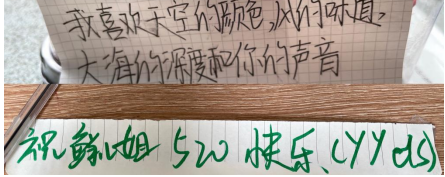 我喜欢天空的颜色,风的味道,
大海的深度和你的声音
祝鲜姐 520 快乐、(YYds)